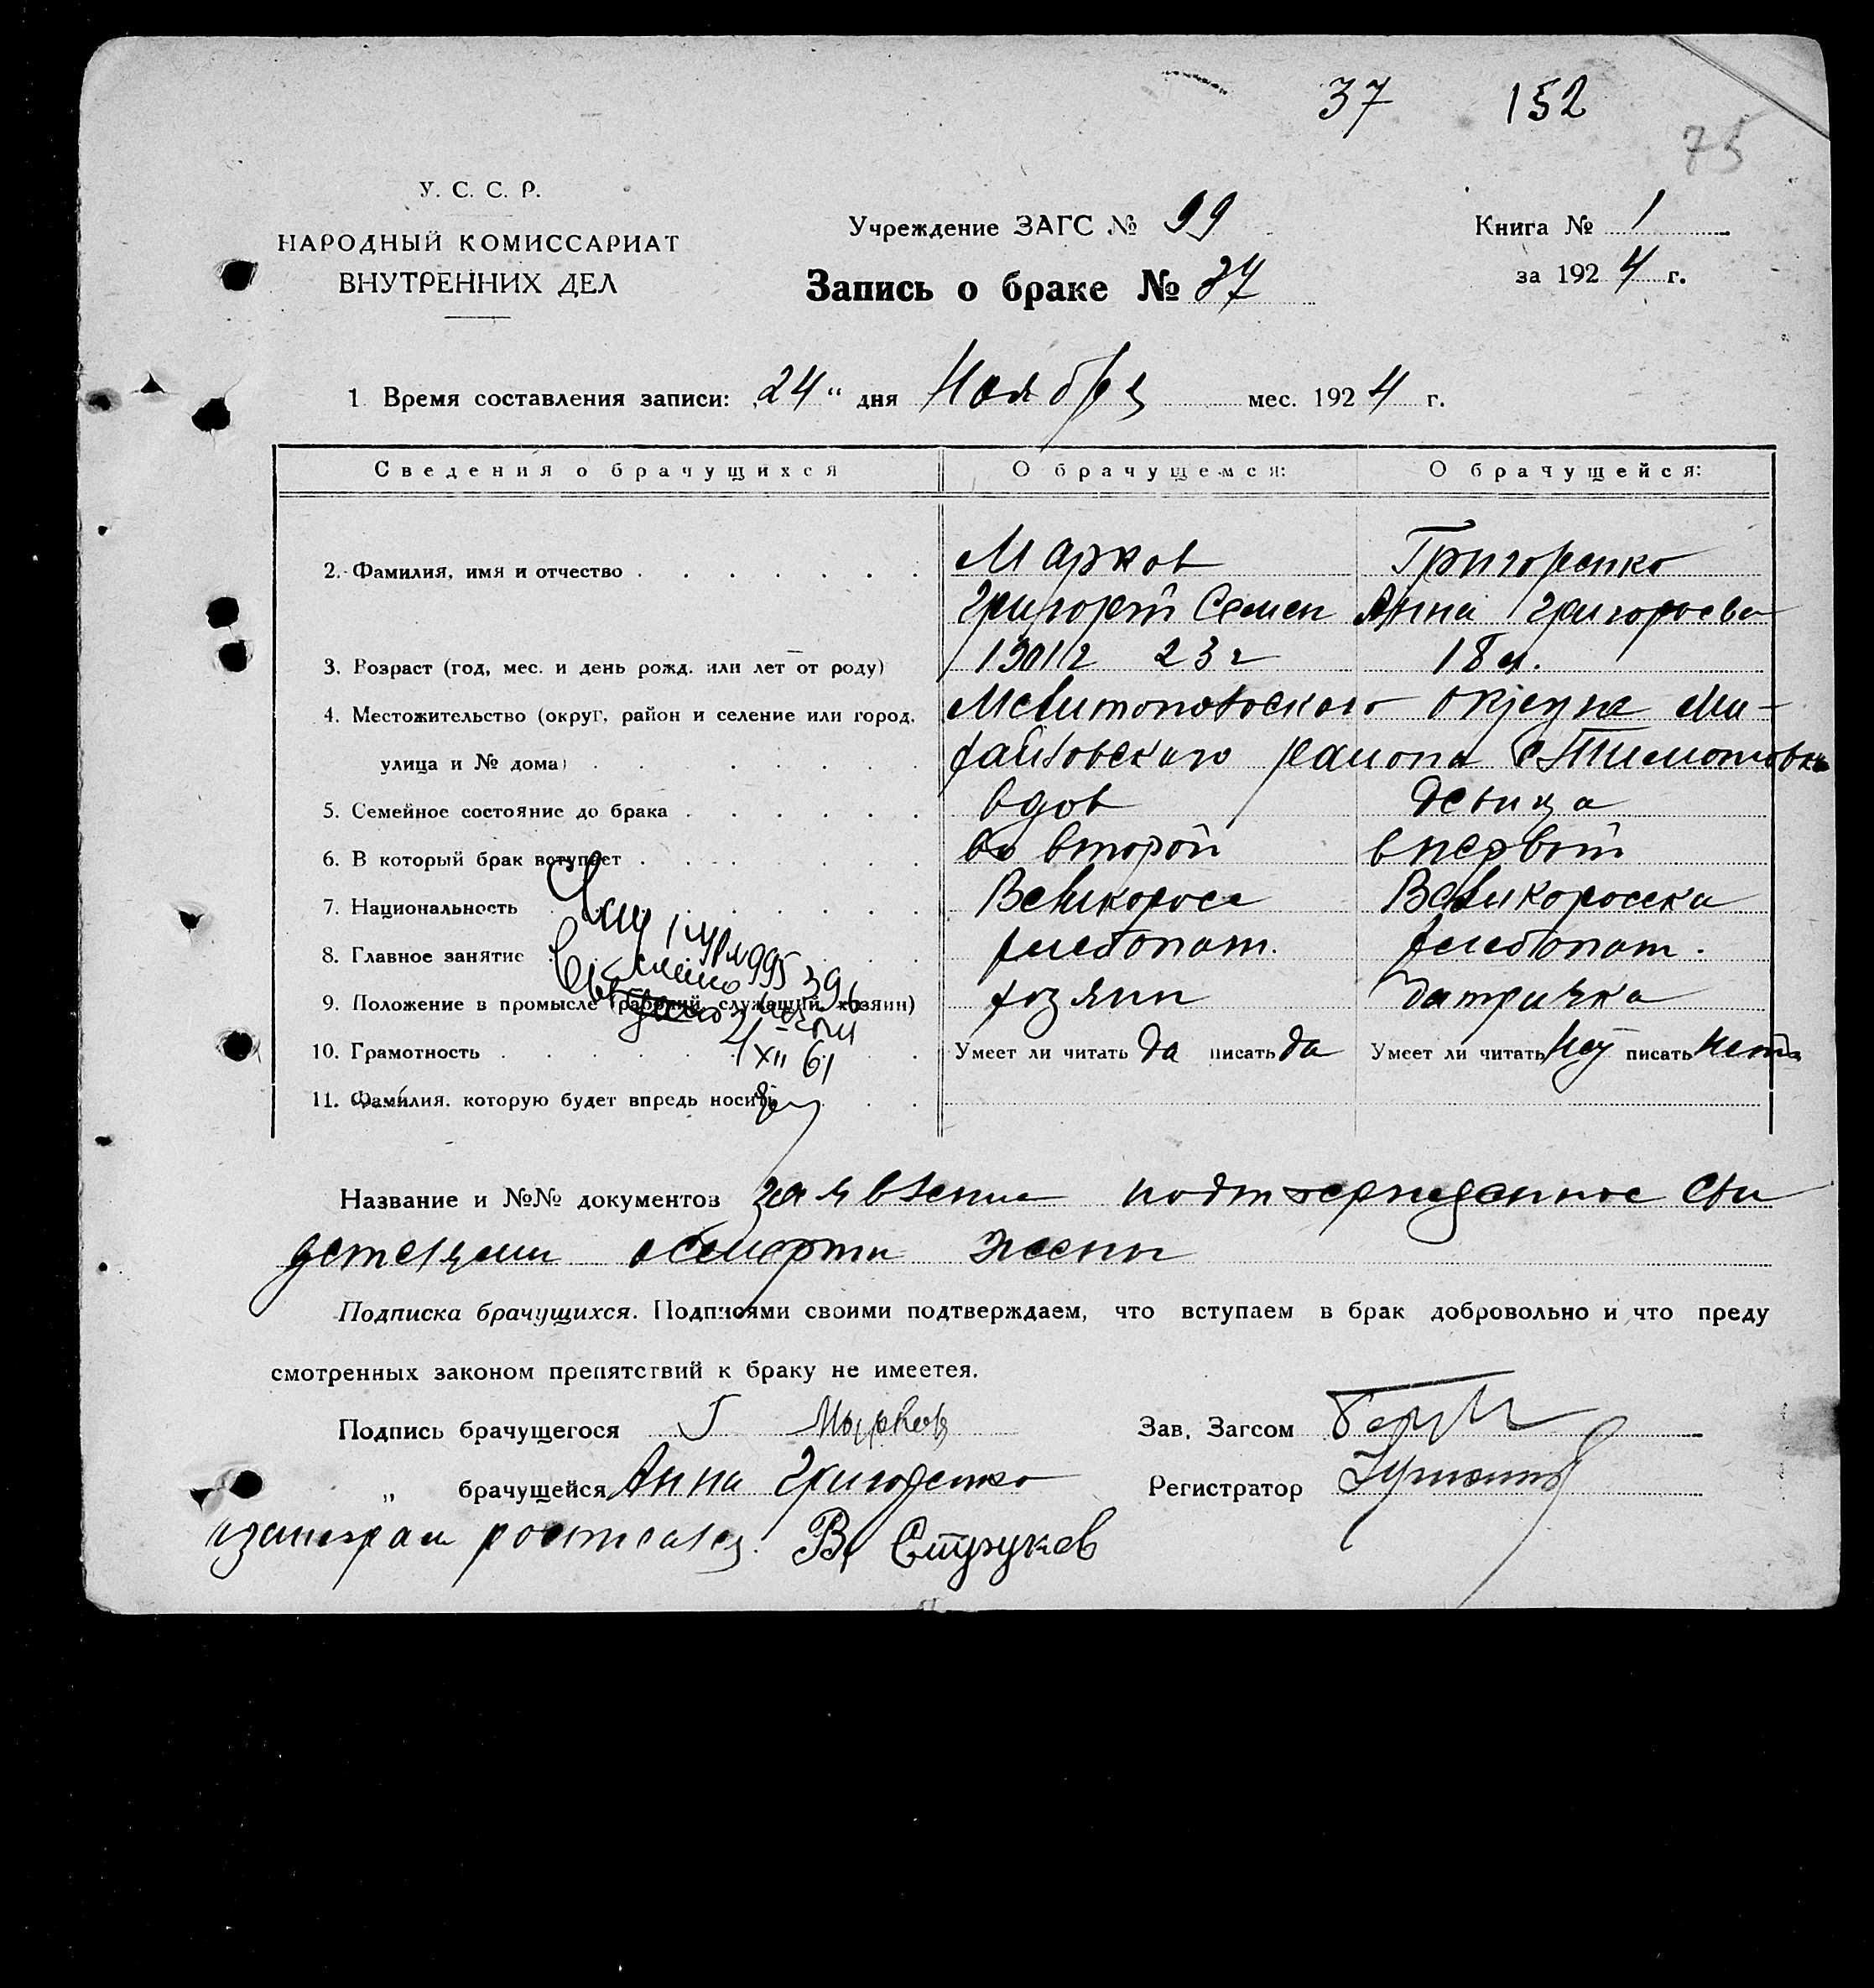 37 152
75
У. С. С. Р.
НАРОДНЫЙ КОМИССАРИАТ
ВНУТРЕННИХ ДЕЛ
Учреждение ЗАГС № 99
Запись о браке № 37
Книга № 1
за 1924 г.
1 Время составления записи: „24“ дня Ноября мес. 1924 г.
Сведения о брачущихся О брачущемся: О брачущейся:
2. Фамилия, имя и отчество Марков Григоренко
Григорий Семен Анна Григорьева
3. Возраст (год, мес. и день рожд. или лет от роду) 1901 г 23 г 18 л.
4. Местожительство (округ, район и селение или город, Мелитопольского округа Ми-
улица и № дома) хайловского района с Тимошовка
5. Семейное состояние до брака вдов девица
6. В который брак вступает во второй в первый
7. Национальность Великоросс Великоросска
8. Главное занятие хлебопаш. хлебопаш.
9. Положение в промысле (рабочий, служащий, хозяин) хозяин батрачка
10. Грамотность Умеет ли читать да писать да Умеет ли читать нет писать нет
11. Фамилия, которую будет впредь носить
995396
XII 61
Название и №№ документов заявление подтвержденное сви
детелями о смерти жены
Подписка брачущихся. Подписями своими подтверждаем, что вступаем в брак добровольно и что преду
смотренных законом препятствий к браку не имеется.
Подпись брачущегося Г Марков Зав. Загсом
„ брачущейся Анна Григоренко Регистратор
В. Струков